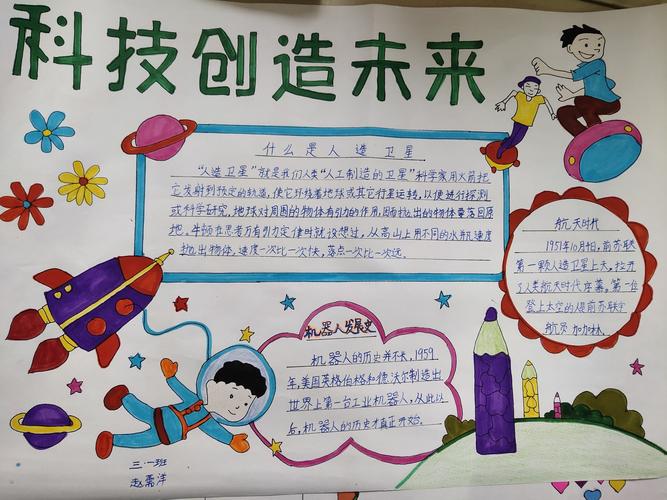 科技创造未来
什么是人造卫星
“人造卫星”就是我们人类“人工制造的卫星”科学家用火箭把
它发射到预定的轨道,使它环绕着地球或其它行星运转,以便进行探测
或科学研究,地球对周围的物体有引力的作用,因而抛出的物体要落回原
地,牛顿在思考万有引力定律时就设想过,从高山上用不同的水平速度
抛出物体,速度一次比一次快,落点一次比一次远.
航天时代
1957年10月4日,前苏联
第一颗人造卫星上天,拉开
了人类航天时代序幕,第一位
登上太空的人是前苏联宇
航员 加加林.
机器人发展史
机器人的历史并不长,1959
年,美国英格伯格和德沃尔制造出
世界上第一台工业机器人,从此以
后,机器人的历史才真正开始.
三·一班
赵 洋